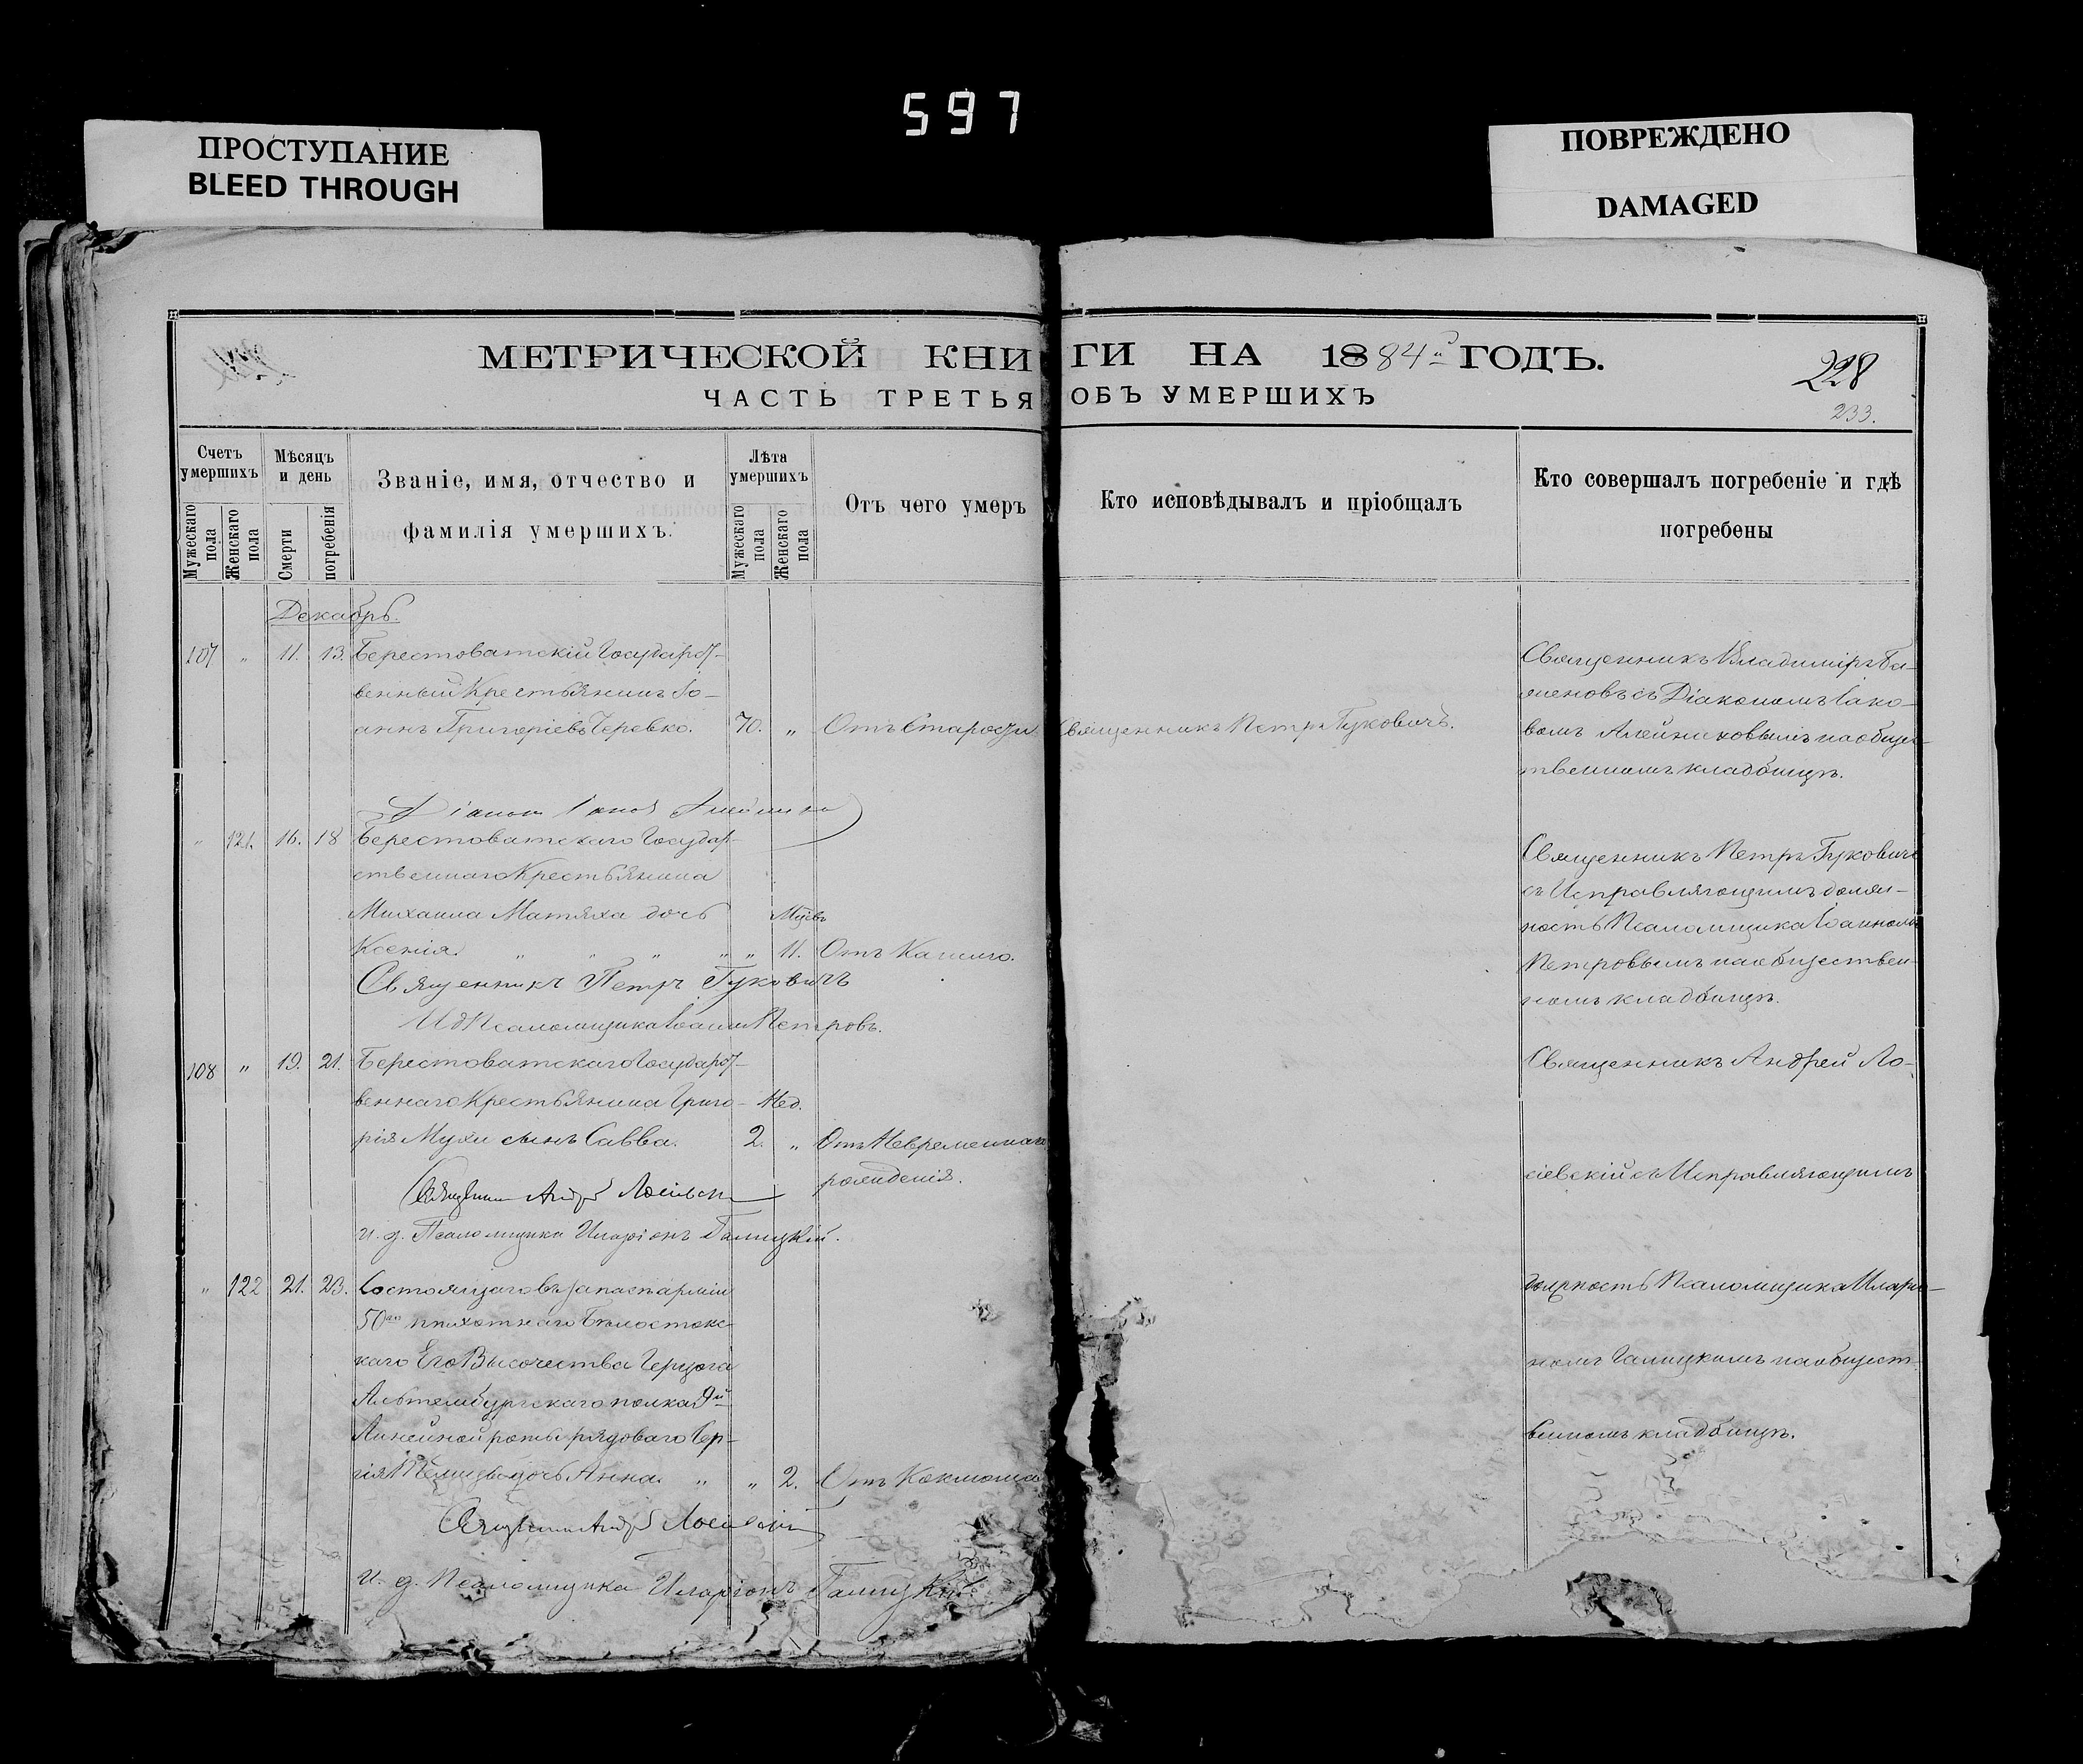 597
ПРОСТУПАНИЕ
BLEED THROUGH
ПОВРЕЖДЕНО
DAMAGED
МЕТРИЧЕСКОЙ КНИГИ НА 1884й ГОДЪ.
228
ЧАСТЬ ТРЕТЬЯ ОБЪ УМЕРШИХЪ
233.
Счетъ умершихъ
Мужескаго пола
Женскаго пола
Мѣсяцъ и день
Смерти
погребенія
Званіе, имя, отчество и
фамилія умершихъ.
Лѣта умершихъ
Мужескаго пола
Женскаго пола
Отъ чего умеръ
Кто исповѣдывалъ и пріобщалъ
Кто совершалъ погребеніе и гдѣ
погребены
Декабрь.
107 „ 11. 13. Берестоватскій Государст-
венный Крестьянинъ Іо-
аннъ Григоріевъ Черевко. 70. „ Отъ Старости Священникъ Петръ Гуковичъ.
Священникъ Владиміръ Ба-
женовъ съ Діакономъ Іако-
вомъ Алейниковымъ на общес-
твенномъ кладбищѣ.
Діаконъ Іаковъ
„ 121. 16. 18 Берестоватскаго Государ-
ственнаго Крестьянина
Михаила Матяха дочь Мѣсяц.
Ксенія. „ „ „ „ „ 11. Отъ Кашлю.
Священникъ Петръ Гуковичъ
съ Исправляющимъ долж-
ность Псаломщика Іоанномъ
Петровымъ на обществен-
номъ кладбищѣ.
Священникъ Петръ Гуковичъ
ИдПсаломщика Іоаннъ Петровъ.
108 „ 19. 21. Берестоватскаго Государст-
веннаго Крестьянина Григо- Нед.
рія Мухи сынъ Савва. 2. „ Отъ Невременнаго
рожденія.
Священникъ Андрей Ло-
сіевскій съ Исправляющимъ
должность Псаломщика Иларі-
номъ Галицкимъ на общест-
венномъ кладбищѣ.
Священникъ Андрей
и. д. Псаломщика Иларіонъ Галицкій.
„ 122 21. 23. Состоящаго въ запасѣ арміи
50го пѣхотнаго Бѣлостокс-
каго Его Высочества Герцога
Альтембургскаго полка 9й
Линейной роты рядоваго Сер-
гія дочь Анна. „ „ 2. Отъ Коклюша
Священникъ Андрей
и. д. Псаломщика Иларіонъ Галицкій.